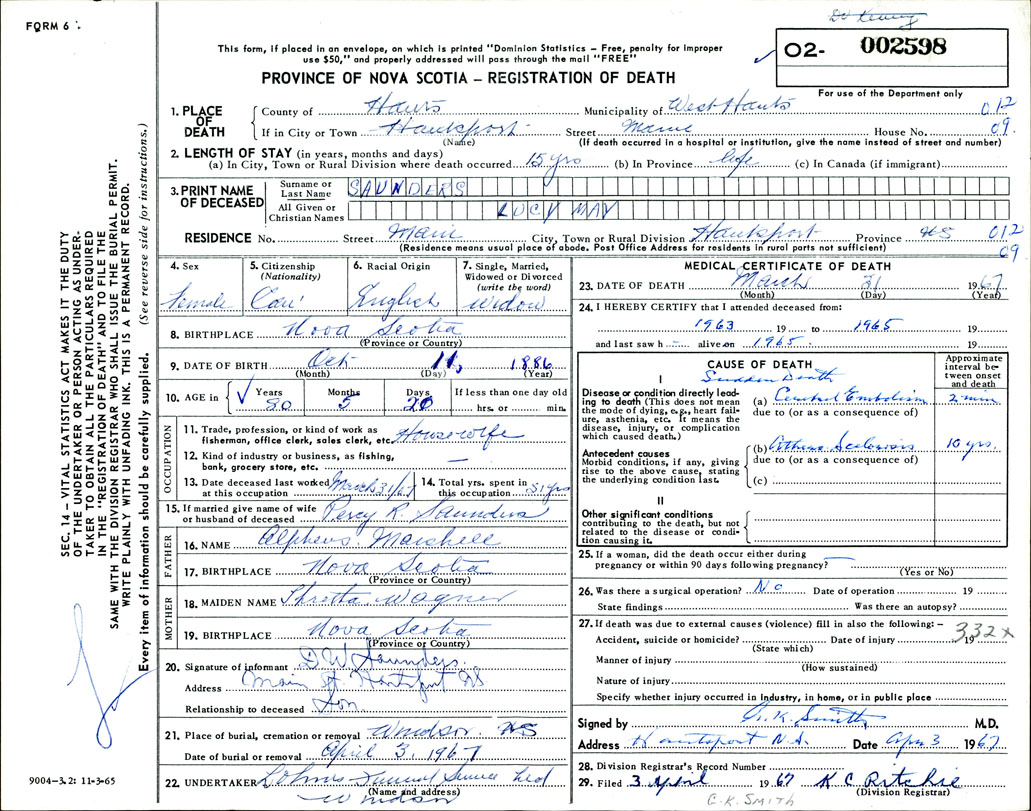 FORM 6
This form, if placed in an envelope, on which is printed "Dominion Statistics – Free, penalty for improper
use $50," and properly addressed will pass through the mail "FREE"
PROVINCE OF NOVA SCOTIA – REGISTRATION OF DEATH
O2- 002598
For use of the Department only
SEC. 14 – VITAL STATISTICS ACT MAKES IT THE DUTY
OF THE UNDERTAKER OR PERSON ACTING AS UNDER-
TAKER TO OBTAIN ALL THE PARTICULARS REQUIRED
IN THE "REGISTRATION OF DEATH" AND TO FILE THE
SAME WITH THE DIVISION REGISTRAR WHO SHALL ISSUE THE BURIAL PERMIT.
WRITE PLAINLY WITH UNFADING INK. THIS IS A PERMANENT RECORD.
Every item of information should be carefully supplied. (See reverse side for instructions.)
1. PLACE OF DEATH
County of Hants Municipality of West Hants 012
If in City or Town Hantsport Street Main House No. 09.
(Name) (If death occurred in a hospital or institution, give the name instead of street and number)
2. LENGTH OF STAY (in years, months and days)
(a) In City, Town or Rural Division where death occurred 15 yrs (b) In Province Life (c) In Canada (if immigrant)
3. PRINT NAME OF DECEASED
Surname or Last Name SAUNDERS
All Given or Christian Names LUCY MAY
RESIDENCE No. Street Main City, Town or Rural Division Hantsport Province NS 012
(Residence means usual place of abode. Post Office Address for residents in rural parts not sufficient) 09
4. Sex Female
5. Citizenship (Nationality) Can
6. Racial Origin English
7. Single, Married, Widowed or Divorced (write the word) Widow
8. BIRTHPLACE Nova Scotia
(Province or Country)
9. DATE OF BIRTH Oct 11, 1886
(Month) (Day) (Year)
10. AGE in Years 80 Months 5 Days 20 If less than one day old hrs. or min.
OCCUPATION
11. Trade, profession, or kind of work as
fisherman, office clerk, sales clerk, etc. Housewife
12. Kind of industry or business, as fishing,
bank, grocery store, etc. —
13. Date deceased last worked at this occupation March 31/67
14. Total yrs. spent in this occupation 51 yrs
15. If married give name of wife
or husband of deceased Percy R. Saunders
FATHER
16. NAME Alpheus Marshall
17. BIRTHPLACE Nova Scotia
(Province or Country)
MOTHER
18. MAIDEN NAME Wagner
19. BIRTHPLACE Nova Scotia
(Province or Country)
20. Signature of informant D W Saunders
Address Main St. Hantsport NS
Relationship to deceased Son
21. Place of burial, cremation or removal Windsor NS
Date of burial or removal April 3, 1967
22. UNDERTAKER Funeral Service Ltd
(Name and address)
Windsor
9004–3.2: 11-3-65
MEDICAL CERTIFICATE OF DEATH
23. DATE OF DEATH March 31 1967
(Month) (Day) (Year)
24. I HEREBY CERTIFY that I attended deceased from:
1963 19 to 1965 19
and last saw h alive on 1965 19
CAUSE OF DEATH
Approximate interval between onset and death
I
Sudden Death
Disease or condition directly lead-
ing to death (This does not mean
the mode of dying, e.g., heart fail-
ure, asthenia, etc. It means the
disease, injury, or complication
which caused death.)
(a) Cerebral Embolism 2 min
due to (or as a consequence of)
Antecedent causes
Morbid conditions, if any, giving
rise to the above cause, stating
the underlying condition last.
(b) Athero Sclerosis 10 yrs.
due to (or as a consequence of)
(c)
II
Other significant conditions
contributing to the death, but not
related to the disease or condi-
tion causing it.
25. If a woman, did the death occur either during
pregnancy or within 90 days following pregnancy? —
(Yes or No)
26. Was there a surgical operation? No Date of operation 19
State findings Was there an autopsy?
27. If death was due to external causes (violence) fill in also the following: –
332x
Accident, suicide or homicide? Date of injury 19
(State which)
Manner of injury
(How sustained)
Nature of injury
Specify whether injury occurred in industry, in home, or in public place
Signed by C. K. Smith M.D.
Address Hantsport N.S. Date Apr 3 1967
28. Division Registrar's Record Number
29. Filed 3 April 1967 K C Ritchie
(Division Registrar)
C.K. SMITH